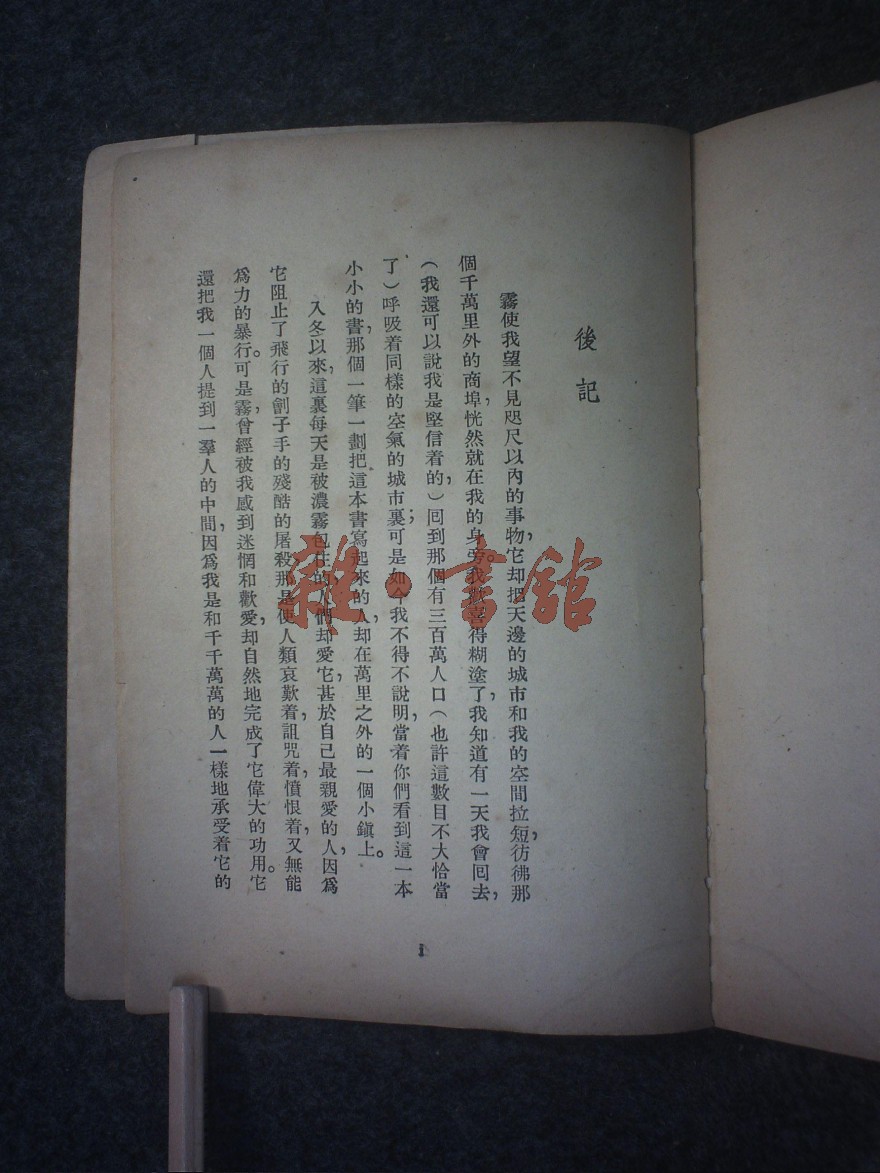 後記
霧使我望不見咫尺以內的事物，它却把天邊的城市和我的空間拉短，彷彿那
個千萬里外的商埠，恍然就在我的身旁。我歡喜得糊塗了，我知道有一天我會囘去，
（我還可以說我是堅信着的，）囘到那個有三百萬人口（也許這數目不大恰當
了）呼吸着同樣的空氣的城市裏；可是如今我不得不說明，當着你們看到這一本
小小的書，那個一筆一劃把這本書寫起來的人，却在萬里之外的一個小鎭上。
入冬以來，這裏每天是被濃霧包住的，人們却愛它，甚於自己最親愛的人，因爲
它阻止了飛行的劊子手的殘酷的屠殺，那是使人類哀歎着，詛咒着，憤恨着，又無能
爲力的暴行。可是霧，曾經被我感到迷惘和歡愛，却自然地完成了它偉大的功用。它
還把我一個人提到一羣人的中間，因爲我是和千千萬萬的人一樣地承受着它的
1
雜·書館